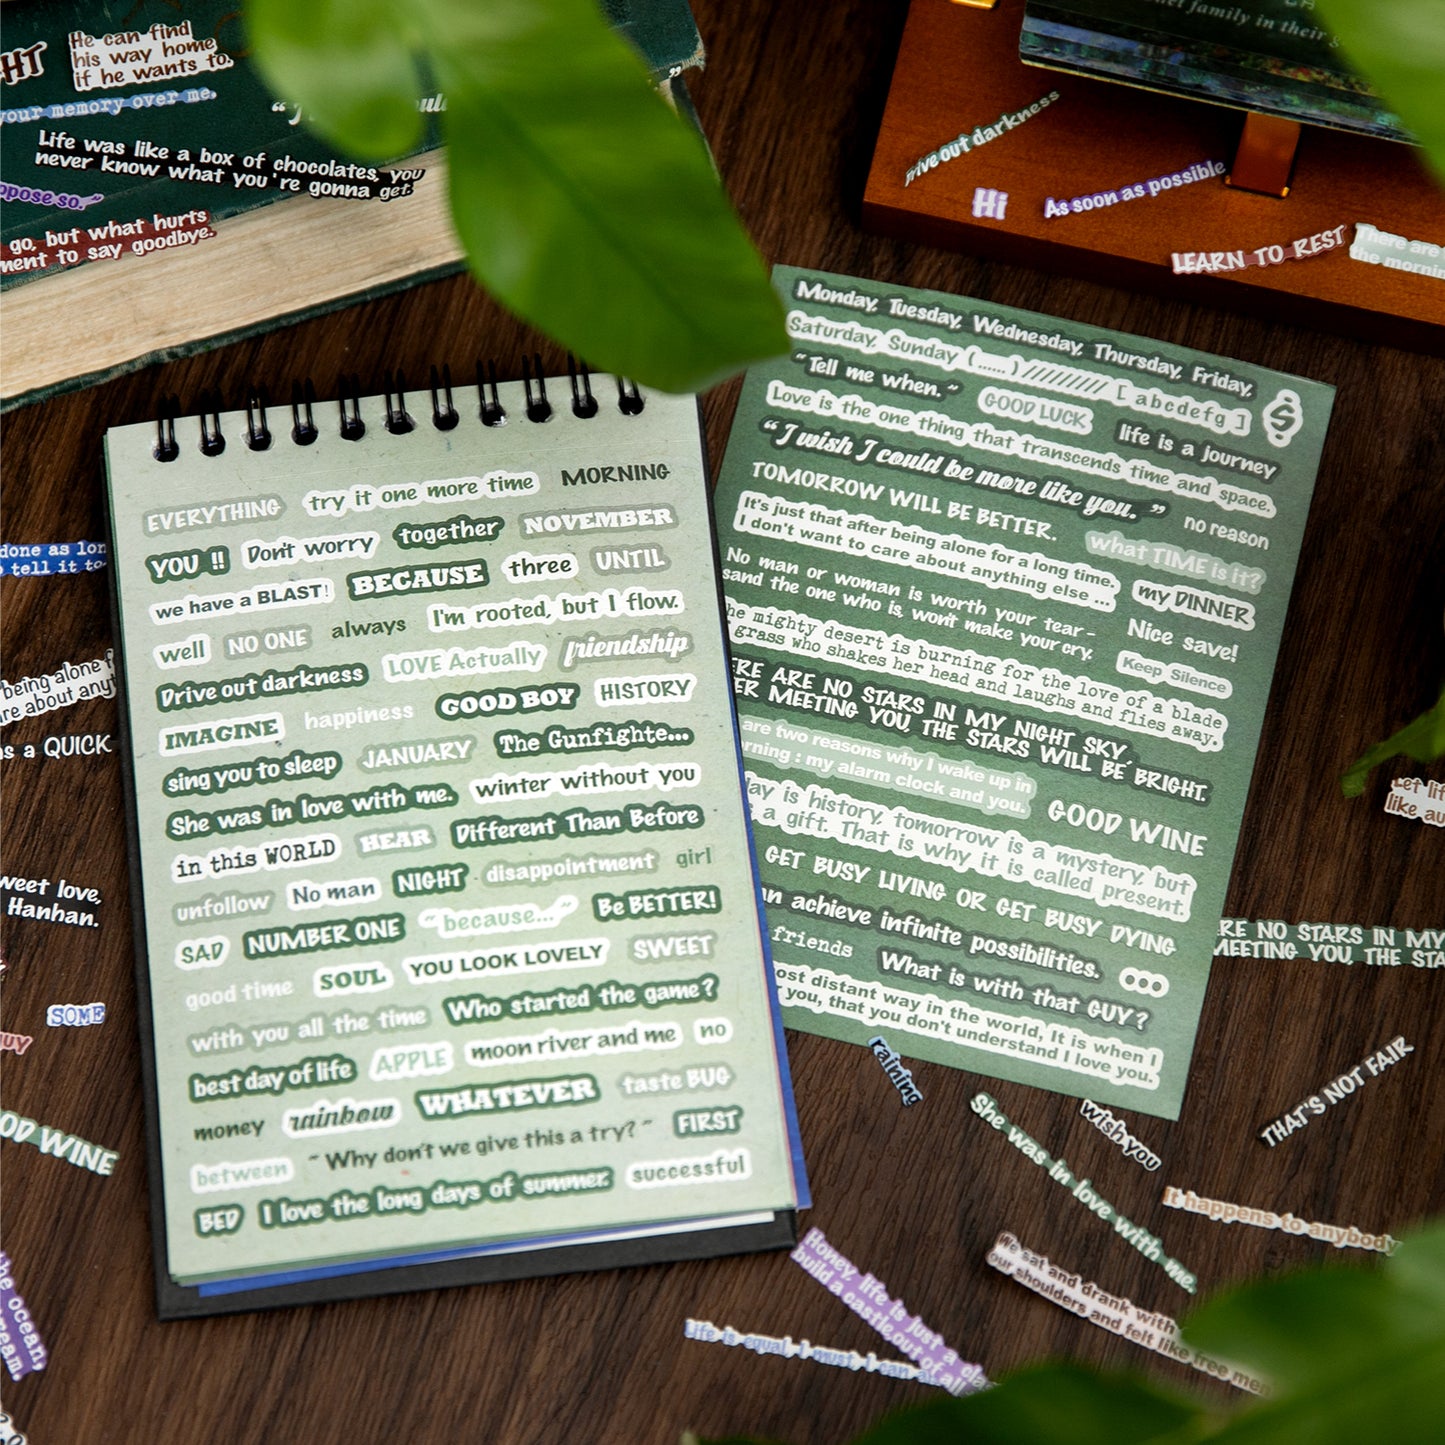 HT
He can find
his way home
if he wants to.
your memory over me.
Life was like a box of chocolates, you
never know what you're gonna get.
ppose so."
go, but what hurts
ment to say goodbye.
family in their
Drive out darkness
Hi
As soon as possible
LEARN TO REST
There are
the mornin
EVERYTHING try it one more time MORNING
YOU !! Don't worry together NOVEMBER
we have a BLAST! BECAUSE three UNTIL
well NO ONE always I'm rooted, but I flow.
Drive out darkness LOVE Actually friendship
IMAGINE happiness GOOD BOY HISTORY
sing you to sleep JANUARY The Gunfighte...
She was in love with me. winter without you
in this WORLD HEAR Different Than Before
unfollow No man NIGHT disappointment girl
SAD NUMBER ONE "because..." Be BETTER!
good time SOUL YOU LOOK LOVELY SWEET
with you all the time Who started the game?
best day of life APPLE moon river and me no
money rainbow WHATEVER taste BUG
between "Why don't we give this a try?" FIRST
BED I love the long days of summer. successful
Monday, Tuesday, Wednesday, Thursday, Friday,
Saturday, Sunday (......) ////////// [abcdefg] $
"Tell me when." GOOD LUCK life is a journey
Love is the one thing that transcends time and space.
"I wish I could be more like you. "
TOMORROW WILL BE BETTER. no reason
It's just that after being alone for a long time,
I don't want to care about anything else ...
what TIME is it?
No man or woman is worth your tear-
sand the one who is, won't make your cry.
my DINNER
Nice save!
he mighty desert is burning for the love of a blade
grass who shakes her head and laughs and flies away.
Keep Silence
ERE ARE NO STARS IN MY NIGHT SKY,
ER MEETING YOU, THE STARS WILL BE BRIGHT.
are two reasons why I wake up in
orning : my alarm clock and you.
GOOD WINE
day is history, tomorrow is a mystery, but
s a gift. That is why it is called present.
GET BUSY LIVING OR GET BUSY DYING
an achieve infinite possibilities.
friends What is with that GUY?
ost distant way in the world, It is when I
you, that you don't understand I love you.
done as lon
tell it to
being alone f
re about anyt
as a QUICK
weet love,
Hanhan.
SOME
GUY
OD WINE
the ocean,
Let lif
like au
RE NO STARS IN MY
MEETING YOU, THE STA
raining
She was in love with me.
wish you
THAT'S NOT FAIR
It happens to anybody
We sat and drank with
our shoulders and felt like free men
Honey, life is just a cla
build a castle out of all
Life is equal, I must, I can a